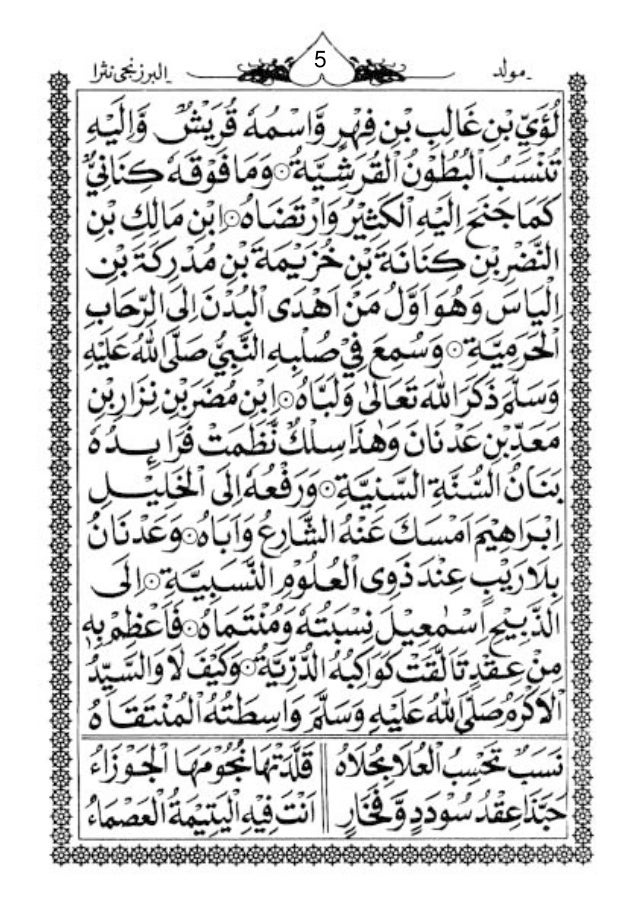 مولد
5
البرزنجي نثرا
لُؤَيِّ بْنِ غَالِبِ بْنِ فِهْرٍ وَّاسْمُهٗ قُرَيْشٌ وَّاِلَيْهِ
تُنْسَبُ الْبُطُوْنُ الْقُرَشِيَّةُ ۞ وَمَا فَوْقَهٗ كِنَانِيٌّ
كَمَا جَنَحَ اِلَيْهِ الْكَثِيْرُ وَارْتَضَاهُ ۞ اِبْنِ مَالِكِ بْنِ
النَّضْرِ بْنِ كِنَانَةَ بْنِ خُزَيْمَةَ بْنِ مُدْرِكَةَ بْنِ
اِلْيَاسَ وَهُوَ اَوَّلُ مَنْ اَهْدَى الْبُدْنَ اِلَى الرِّحَابِ
الْحَرَمِيَّةِ ۞ وَسُمِعَ فِيْ صُلْبِهِ النَّبِيُّ صَلَّى اللهُ عَلَيْهِ
وَسَلَّمَ ذَكَرَ اللهَ تَعَالٰى وَلَبَّاهُ ۞ اِبْنِ مُضَرَ بْنِ نِزَارِ بْنِ
مَعَدِّ بْنِ عَدْنَانَ وَهٰذَا سِلْكٌ نَّظَمَتْ فَرَائِدَهٗ
بَنَانُ السُّنَّةِ السَّنِيَّةِ ۞ وَرَفْعُهٗ اِلَى الْخَلِيْلِ
اِبْرَاهِيْمَ اَمْسَكَ عَنْهُ الشَّارِعُ وَاَبَاهُ ۞ وَعَدْنَانُ
بِلَا رَيْبٍ عِنْدَ ذَوِى الْعُلُوْمِ النَّسَبِيَّةِ ۞ اِلَى
الذَّبِيْحِ اِسْمٰعِيْلَ نِسْبَتُهٗ وَمُنْتَمَاهُ ۞ فَاَعْظِمْ بِهٖ
مِنْ عِقْدٍ تَاَلَّقَتْ كَوَاكِبُهُ الدُّرِّيَّةُ ۞ وَكَيْفَ لَا وَالسَّيِّدُ
الْاَكْرَمُ صَلَّى اللهُ عَلَيْهِ وَسَلَّمَ وَاسِطَتُهُ الْمُنْتَقَاهُ
نَسَبٌ تَحْسِبُ الْعُلَا بِحُلَاهُ قَلَّدَتْهَا نُجُوْمَهَا الْجَوْزَاءُ
حَبَّذَا عِقْدُ سُوْدَدٍ وَّفَخَارٍ اَنْتَ فِيْهِ الْيَتِيْمَةُ الْعَصْمَاءُ